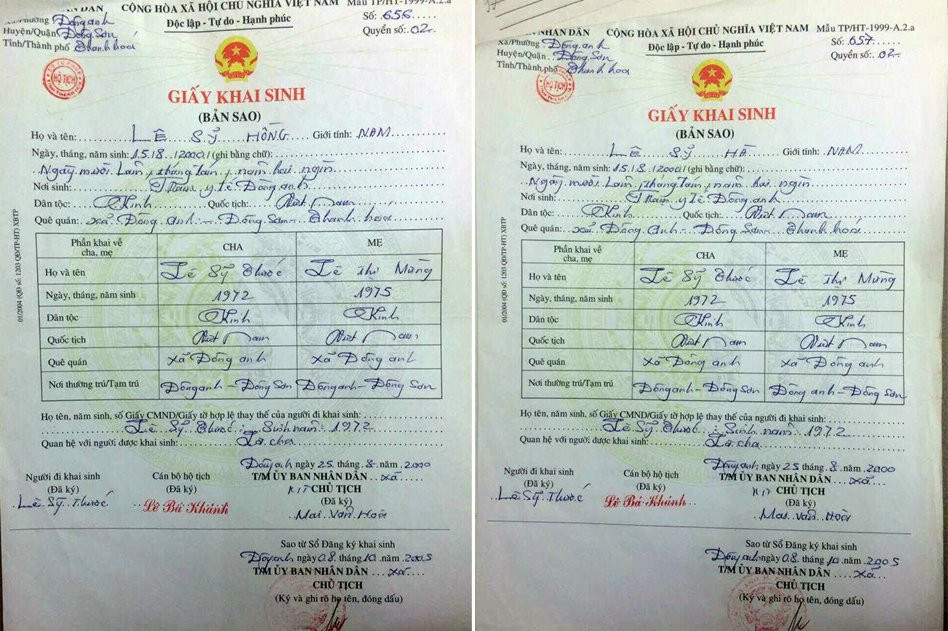 DÂN CỘNG HÒA XÃ HỘI CHỦ NGHĨA VIỆT NAM Mẫu TP/HT-1999-A.2.a
Xã/Phường Đông anh Độc lập - Tự do - Hạnh phúc Số: 656
Huyện/Quận Đông Sơn Quyển số: 02
Tỉnh/Thành phố Thanh hóa
HỘ TỊCH
GIẤY KHAI SINH
(BẢN SAO)
Họ và tên: LÊ SỸ HỒNG Giới tính: NAM
Ngày, tháng, năm sinh: 15/8/2000 (ghi bằng chữ):
Ngày mười Lăm, tháng tám, năm hai ngìn
Nơi sinh: Trạm y tế Đông anh
Dân tộc: Kinh Quốc tịch: Việt Nam
Quê quán: xã Đông Anh - Đông Sơn - Thanh hóa
Phần khai về cha, mẹ CHA MẸ
Họ và tên Lê Sỹ Thước Lê Thị Mừng
Ngày, tháng, năm sinh 1972 1975
Dân tộc Kinh Kinh
Quốc tịch Việt Nam Việt Nam
Quê quán xã Đông anh xã Đông anh
Nơi thường trú/Tạm trú Đông anh - Đông Sơn Đông anh - Đông Sơn
Họ tên, năm sinh, số Giấy CMND/Giấy tờ hợp lệ thay thế của người đi khai sinh:
Lê Sỹ Thước : Sinh năm : 1972
Quan hệ với người được khai sinh: Là cha
Đông anh ngày 25 tháng 8 năm 2000
Người đi khai sinh Cán bộ hộ tịch T/M ỦY BAN NHÂN DÂN xã
(Đã ký) (Đã ký) KIT CHỦ TỊCH
Lê Sỹ Thước Lê Bá Khánh (Đã ký)
Mai Văn Hoà
Sao từ Sổ Đăng ký khai sinh
Đông anh, ngày 08 tháng 10 năm 2005
T/M ỦY BAN NHÂN DÂN xã
CHỦ TỊCH
(Ký và ghi rõ họ tên, đóng dấu)
01/2004 (QĐ số: 1203 QĐ/TP-HT) XBTP
NHÂN DÂN CỘNG HÒA XÃ HỘI CHỦ NGHĨA VIỆT NAM Mẫu TP/HT-1999-A.2.a
Xã/Phường Đông anh Độc lập - Tự do - Hạnh phúc Số: 657
Huyện/Quận Đông Sơn Quyển số: 02
Tỉnh/Thành phố Thanh hóa
HỘ TỊCH
GIẤY KHAI SINH
(BẢN SAO)
Họ và tên: LÊ SỸ HÀ Giới tính: NAM
Ngày, tháng, năm sinh: 15/8/2000 (ghi bằng chữ):
Ngày mười Lăm, tháng tám, năm hai ngìn
Nơi sinh: Trạm y tế Đông anh
Dân tộc: Kinh Quốc tịch: Việt Nam
Quê quán: xã Đông anh - Đông Sơn - Thanh hóa
Phần khai về cha, mẹ CHA MẸ
Họ và tên Lê Sỹ Thước Lê Thị Mừng
Ngày, tháng, năm sinh 1972 1975
Dân tộc Kinh Kinh
Quốc tịch Việt Nam Việt Nam
Quê quán xã Đông anh xã Đông anh
Nơi thường trú/Tạm trú Đông anh - Đông Sơn Đông anh - Đông Sơn
Họ tên, năm sinh, số Giấy CMND/Giấy tờ hợp lệ thay thế của người đi khai sinh:
Lê Sỹ Thước : Sinh năm 1972
Quan hệ với người được khai sinh: Là cha
Đông anh ngày 25 tháng 8 năm 2000
Người đi khai sinh Cán bộ hộ tịch T/M ỦY BAN NHÂN DÂN xã
(Đã ký) (Đã ký) KIT CHỦ TỊCH
Lê Sỹ Thước Lê Bá Khánh (Đã ký)
Mai Văn Hoà
Sao từ Sổ Đăng ký khai sinh
Đông anh, ngày 08 tháng 10 năm 2005
T/M ỦY BAN NHÂN DÂN xã
CHỦ TỊCH
(Ký và ghi rõ họ tên, đóng dấu)
01/2004 (QĐ số: 1203 QĐ/TP-HT) XBTP